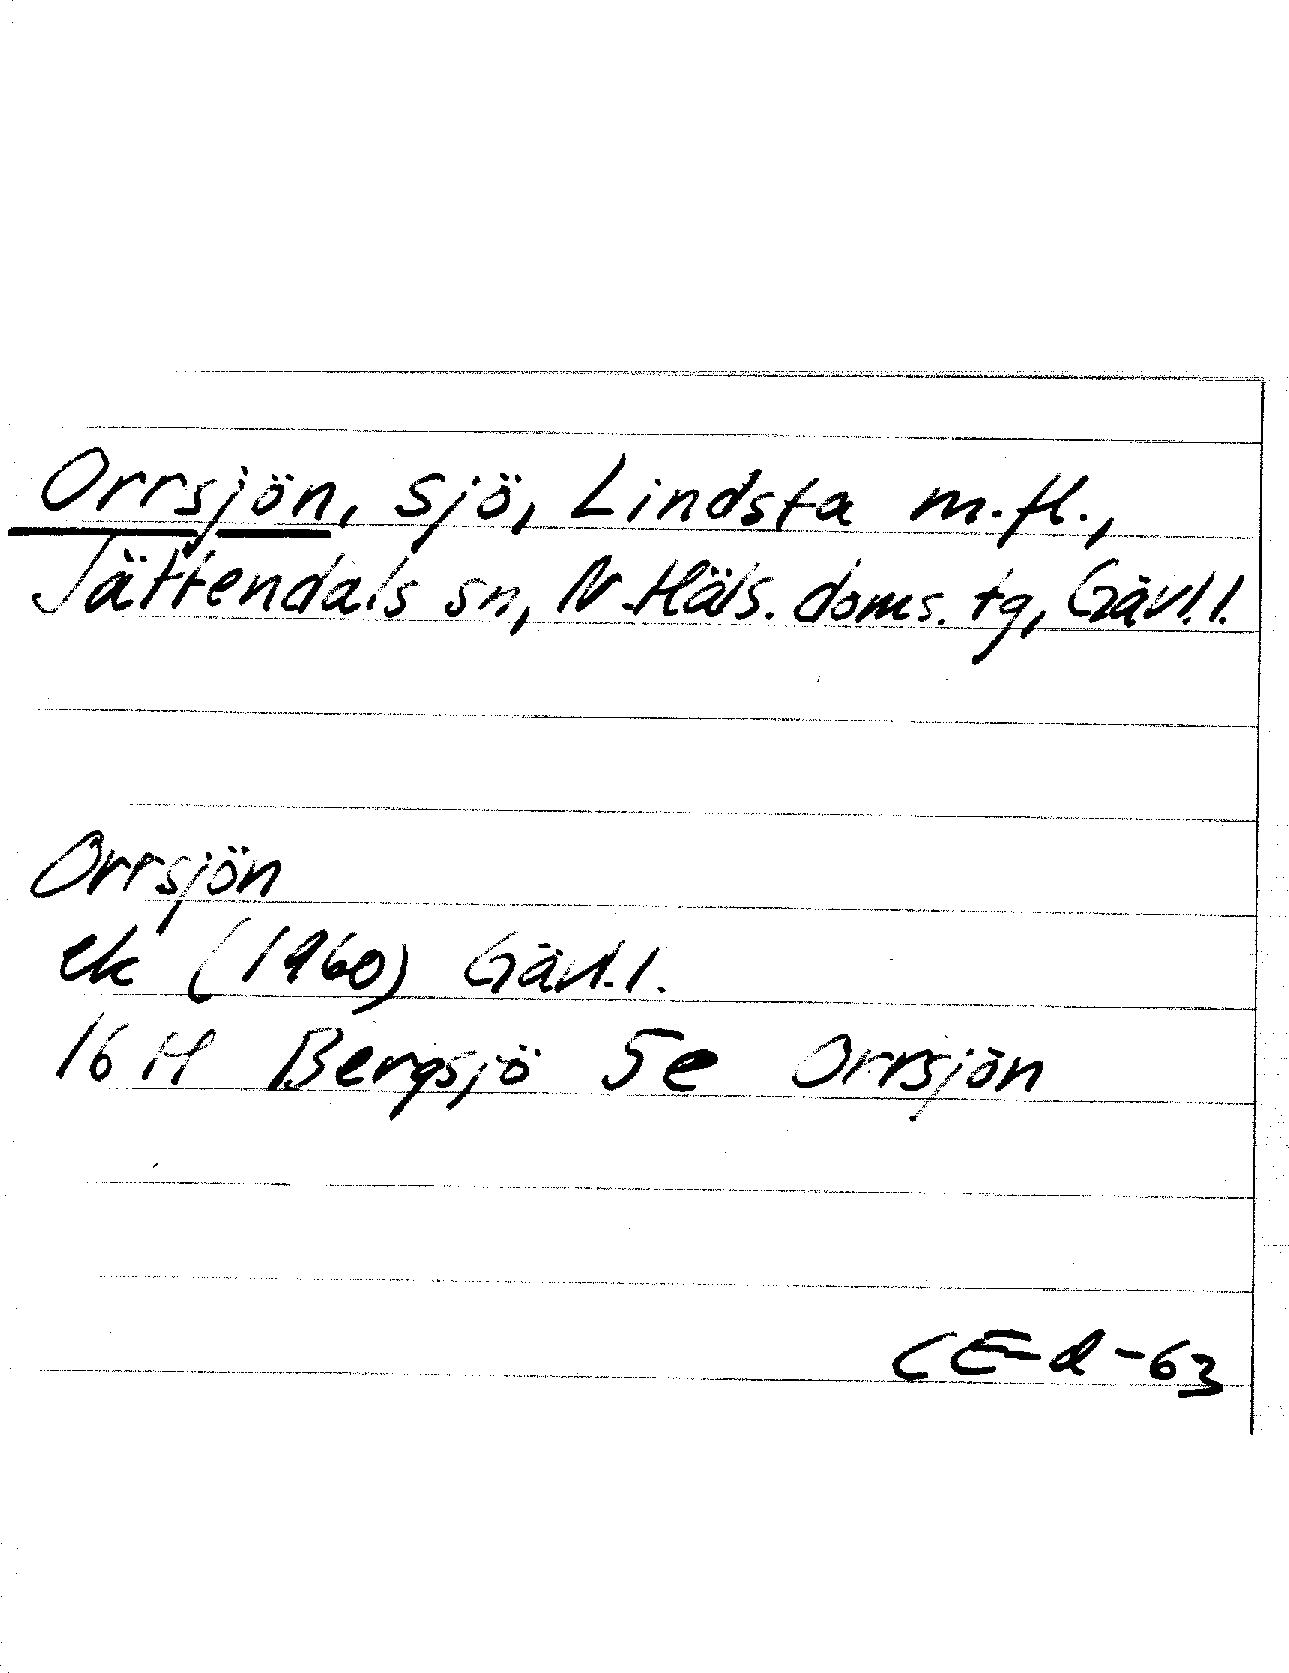 Orrsjön, sjö, Lindsta m.fl.,
Jättendals sn, N.Häls. doms. tg, Gävl.l.
Orrsjön
ek (1960) Gävl.l.
16 H Bergsjö 5e Orrsjön
CE-d-63